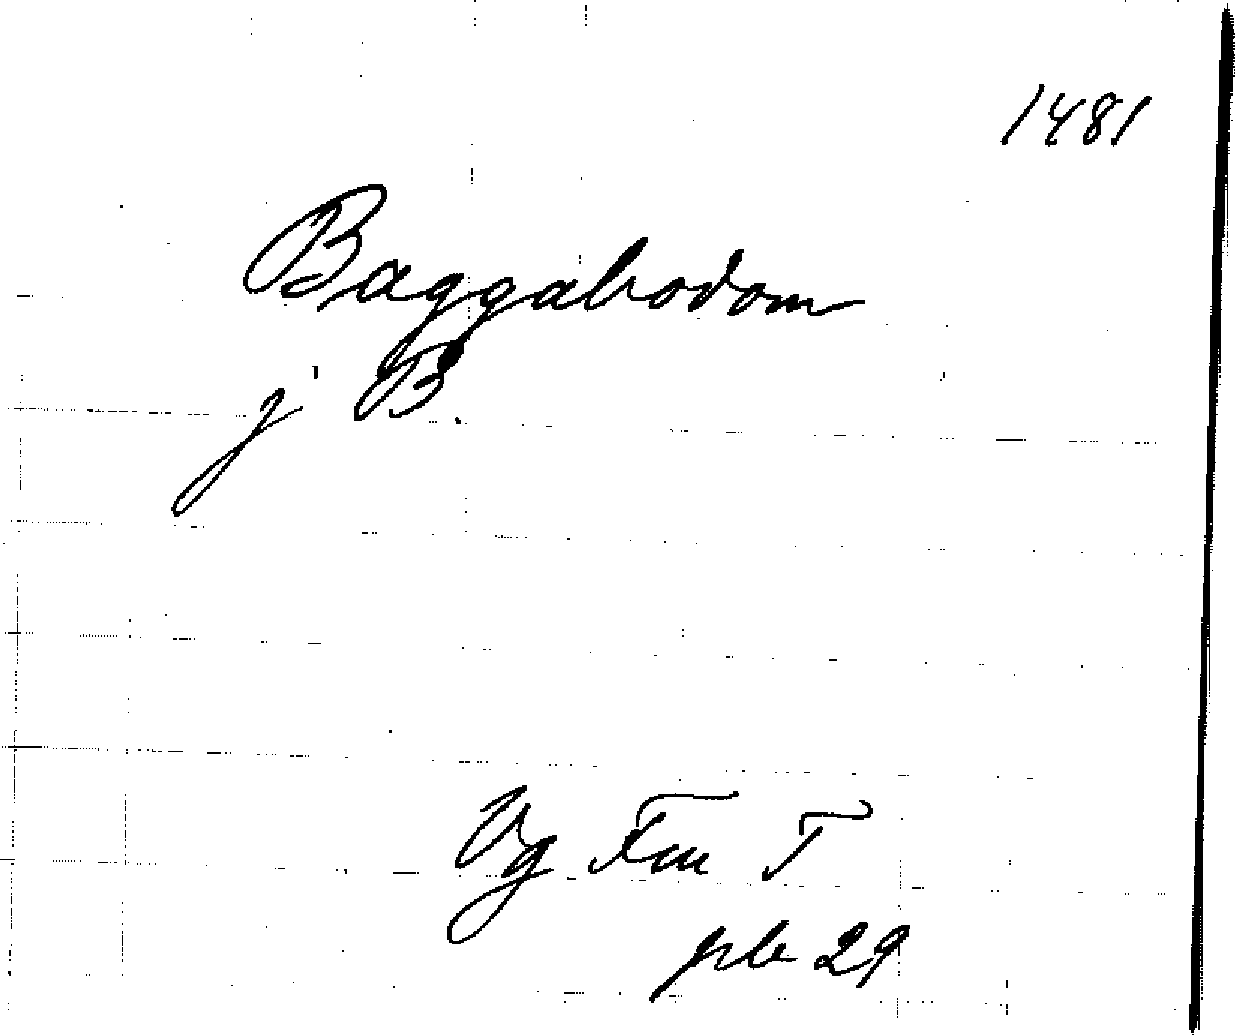 1481
Baggabodom
j B.
Vg Fm T
pb 29